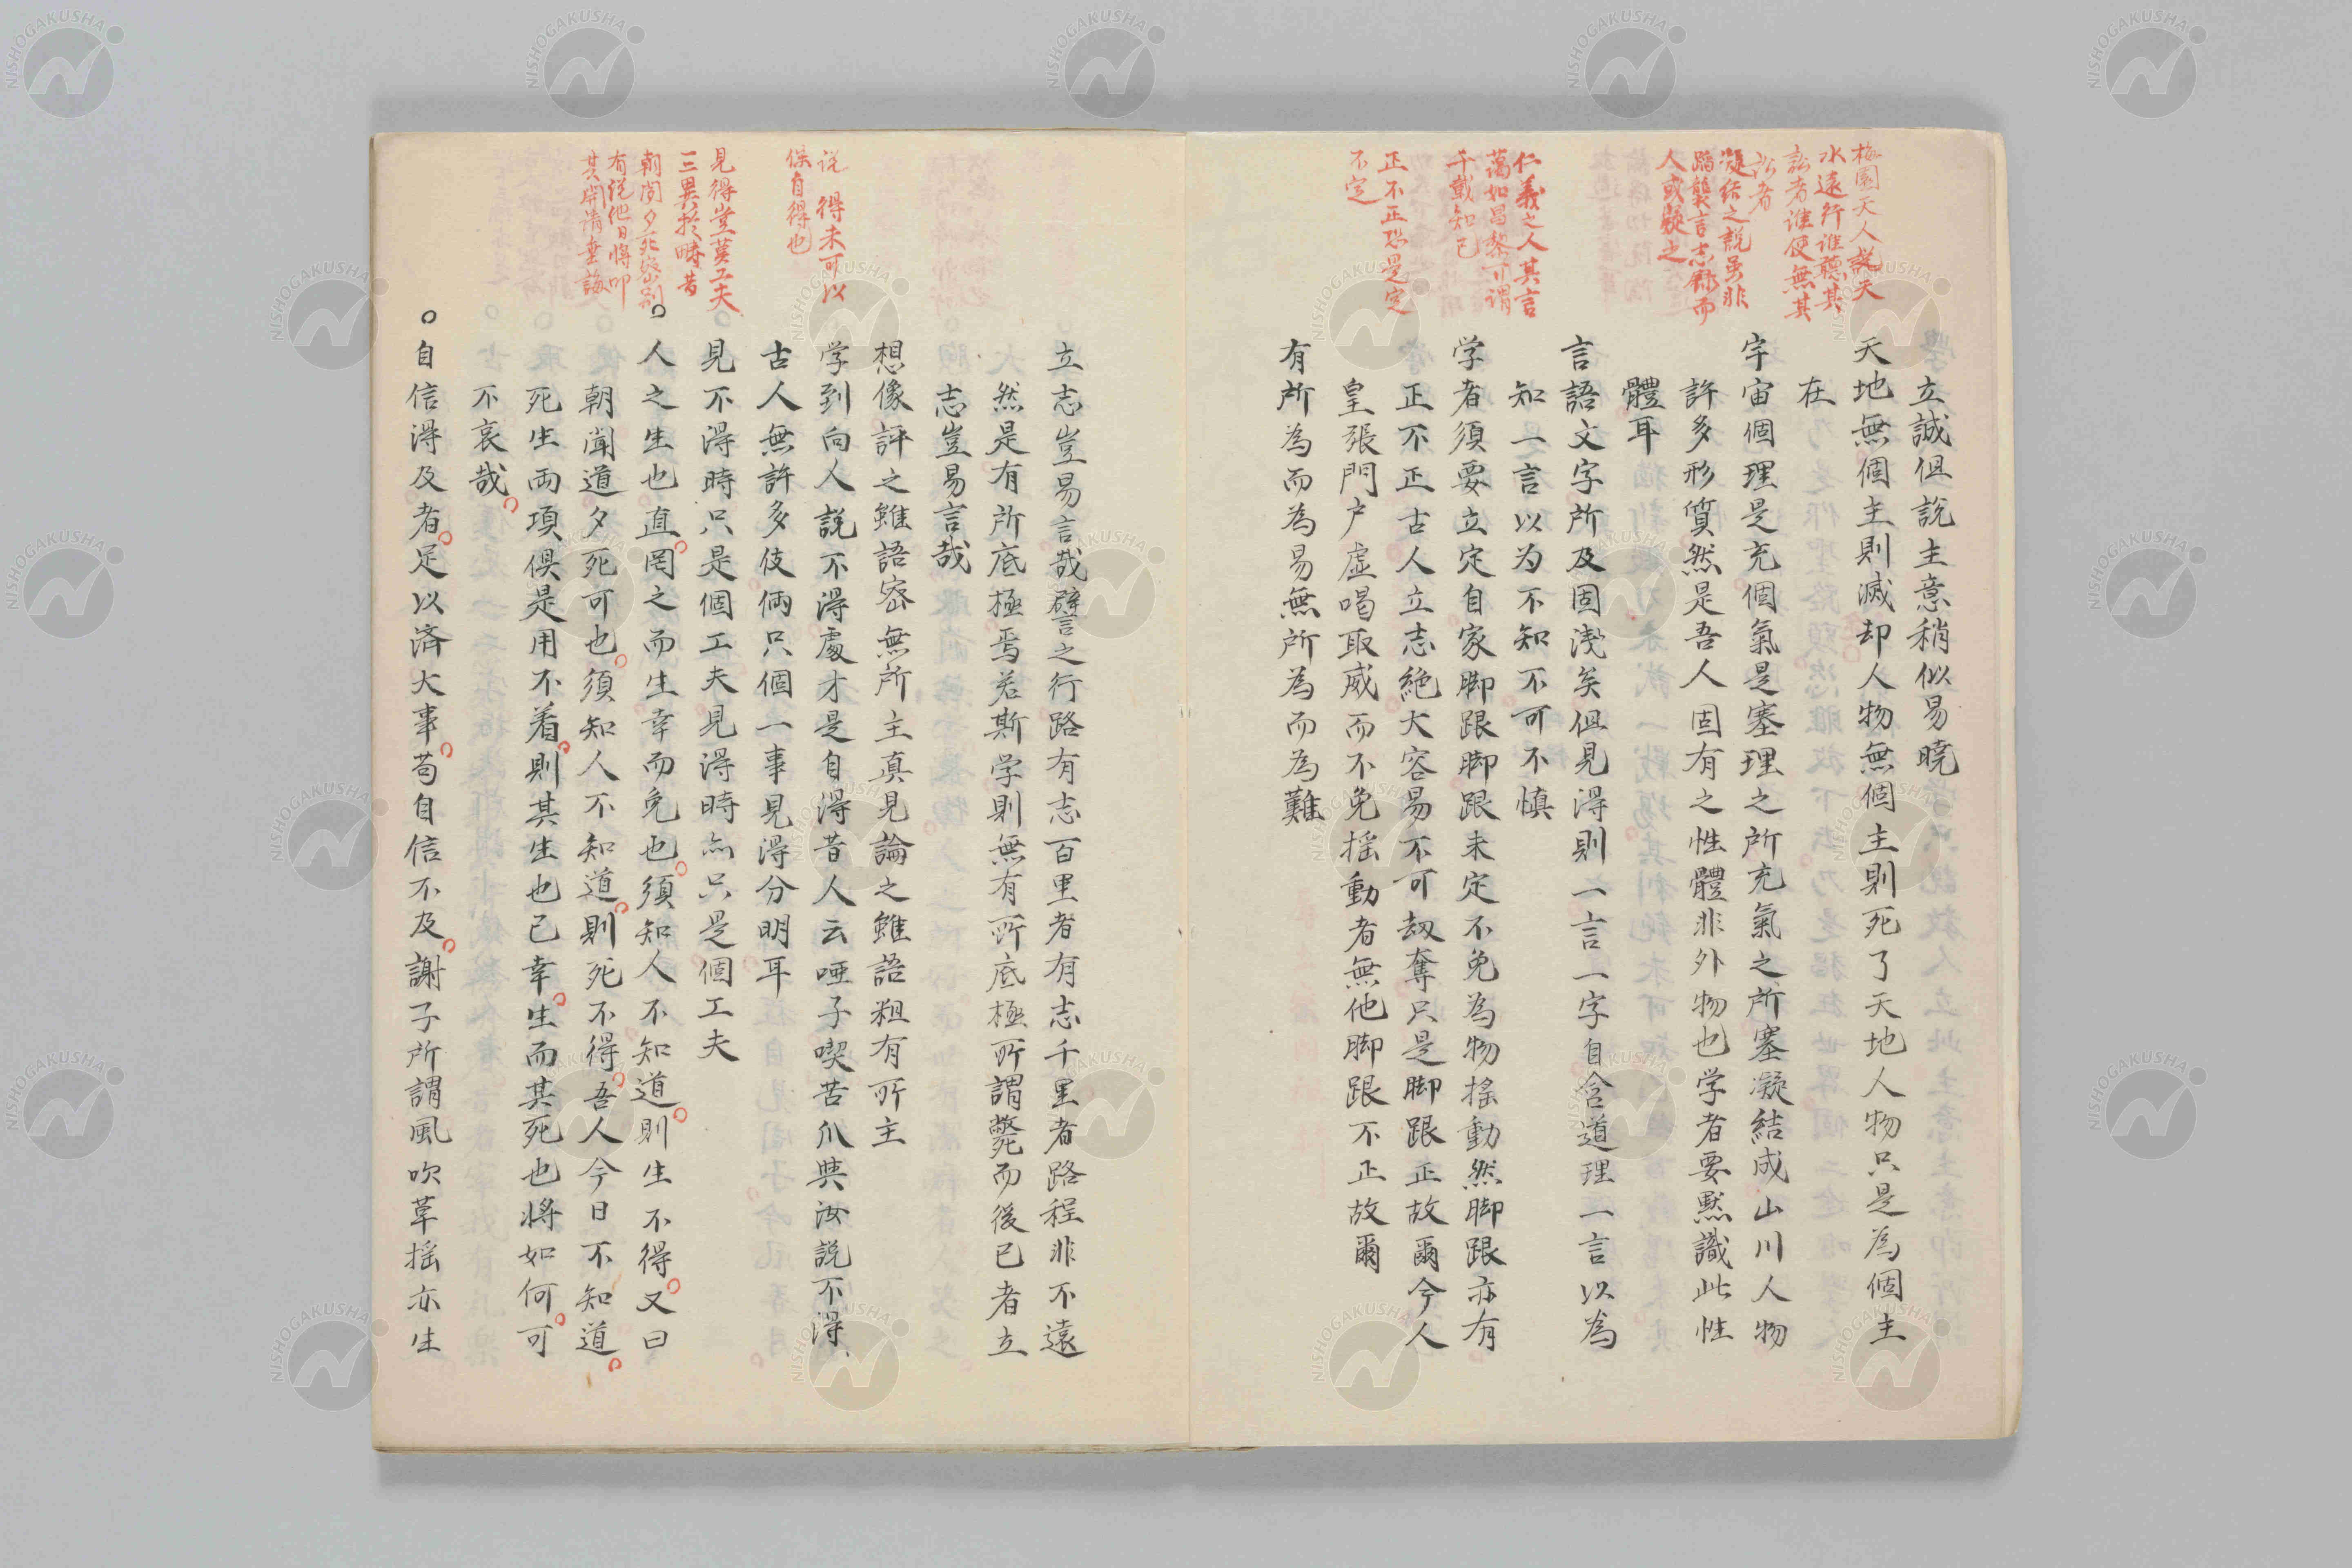 梅園天人説天
水遠行誰聽其
訟者誰使無其
訟者
凝結之説虽非
蹈襲言志録而
人或疑之
仁義之人其言
藹如昌黎
千載知己
正不正恐是定
不定
立誠但説主意稍似易曉
天地無個主則滅却人物無個主則死了天地人物只是為個主
在
宇宙個理是充個氣是塞理之所充氣之所塞凝結成山川人物
許多形質然是吾人固有之性體非外物也学者要黙識此性
體耳
言語文字所及固淺矣但見得則一言一字自含道理一言以為
知一言以为不知不可不慎
学者須要立定自家脚跟脚跟未定不免為物搖動然脚跟亦有
正不正古人立志絶大容易不可劫奪只是脚跟正故爾今人
皇張門户虚喝取威而不免搖動者無他脚跟不正故爾
有所為而為易無所為而為難
説得未可以
保自得也
見得豈莫工夫
三異於疇昔
朝聞夕死
有説他日將叩
其
立志豈易言哉譬之行路有志百里者有志千里者路程非不遠
然是有所底極焉若斯学則無有所底極所謂斃而後已者立
志豈易言哉
想像評之雖語密無所主真見論之雖語粗有所主
学到向人説不得處才是自得昔人云唖子喫苦瓜與汝説不得
古人無許多伎倆只個一事見得分明耳
見不得時只是個工夫見得時亦只是個工夫
○人之生也直罔之而生幸而免也須知人不知道則生不得又曰
朝聞道夕死可也須知人不知道則死不得吾人今日不知道
死生両項俱是用不着則其生也已幸生而其死也將如何可
不哀哉
○自信得及者足以済大事苟自信不及謝子所謂風吹草揺亦生